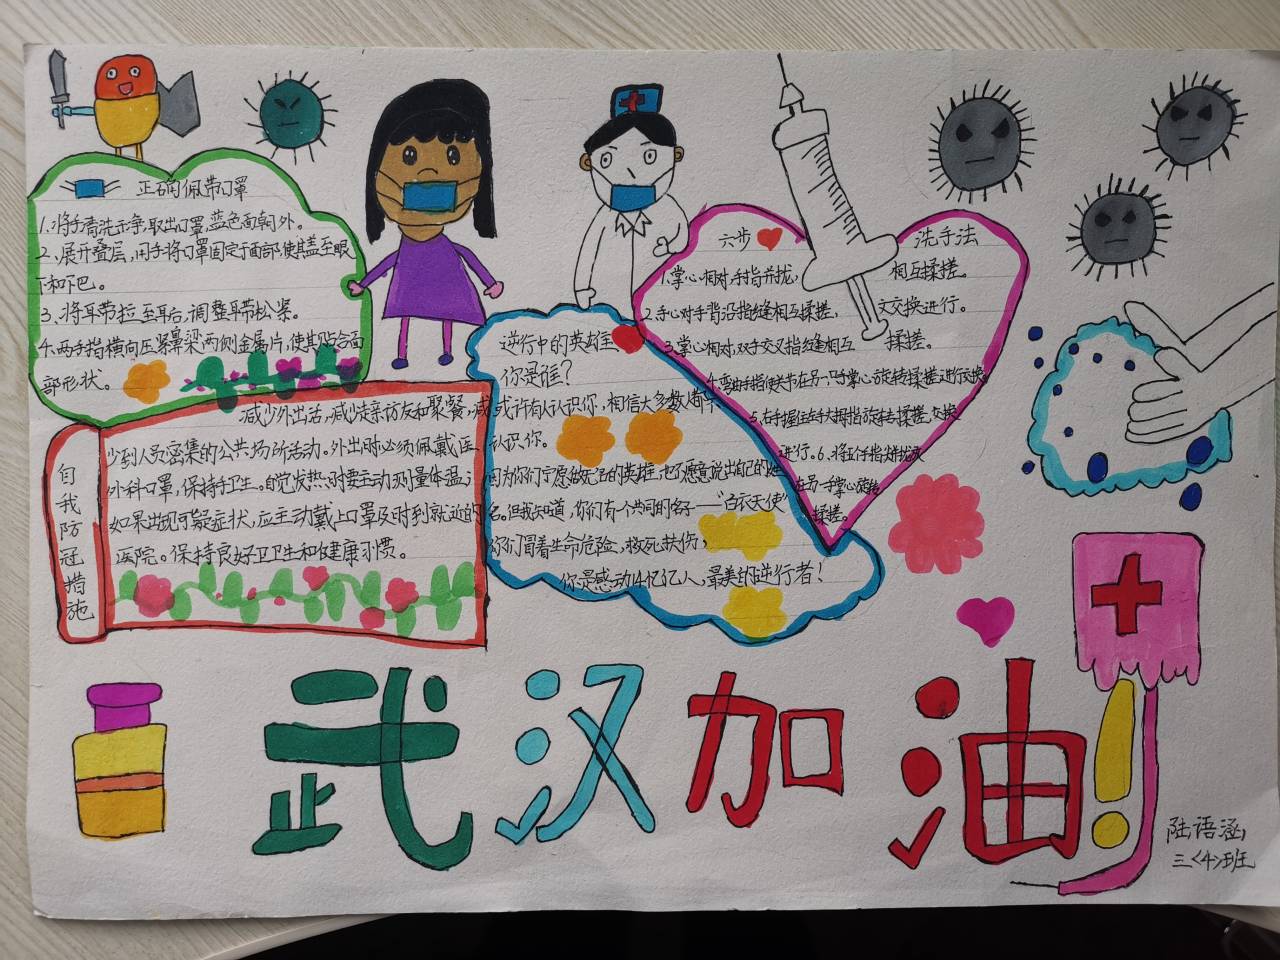 正确佩带口罩
1、将手清洗示净,取出口罩,蓝色面朝外。
2、展开叠层,用手将口罩固定于面部,使其盖至眼
下和下巴。
3、将耳带拉至耳后,调整耳带松紧。
4、两手指横向压紧鼻梁两侧金属片,使其贴合面
部形状。
自我防冠措施
减少外出活,减少走亲访友和聚餐,减
少到人员密集的公共场所活动。外出时必须佩戴医
外科口罩,保持手卫生。自觉发热时要主动测量体温;
如果出现可疑症状,应主动戴上口罩及时到就近的
医院。保持良好卫卫生和健康习惯。
逆行中的英雄
你是谁?
或许有人认识你,相信大多数人
认识你。
因为你们宁愿做无名的英雄,也不愿意说出自己的姓
名。但我知道,你们有一个共同的名字——“白衣天使”
你们冒着生命危险,救死扶伤,
你是感动14亿亿人,最美的逆行者!
六步 洗手法
1.掌心相对,手指并拢, 相互揉搓。
2.手心对手背沿指缝相互揉搓, 交交换进行。
3.掌心相对,双手交叉指缝相互 揉搓。
4.弯曲手指使关节在另一只手掌心旋转揉搓,进行交换
5.右手握住左手大拇指旋转揉搓,交换
进行。6.将五个手指尖并拢放
在另一手掌心旋转
揉搓。
武汉加油!
陆语涵
三<4>班